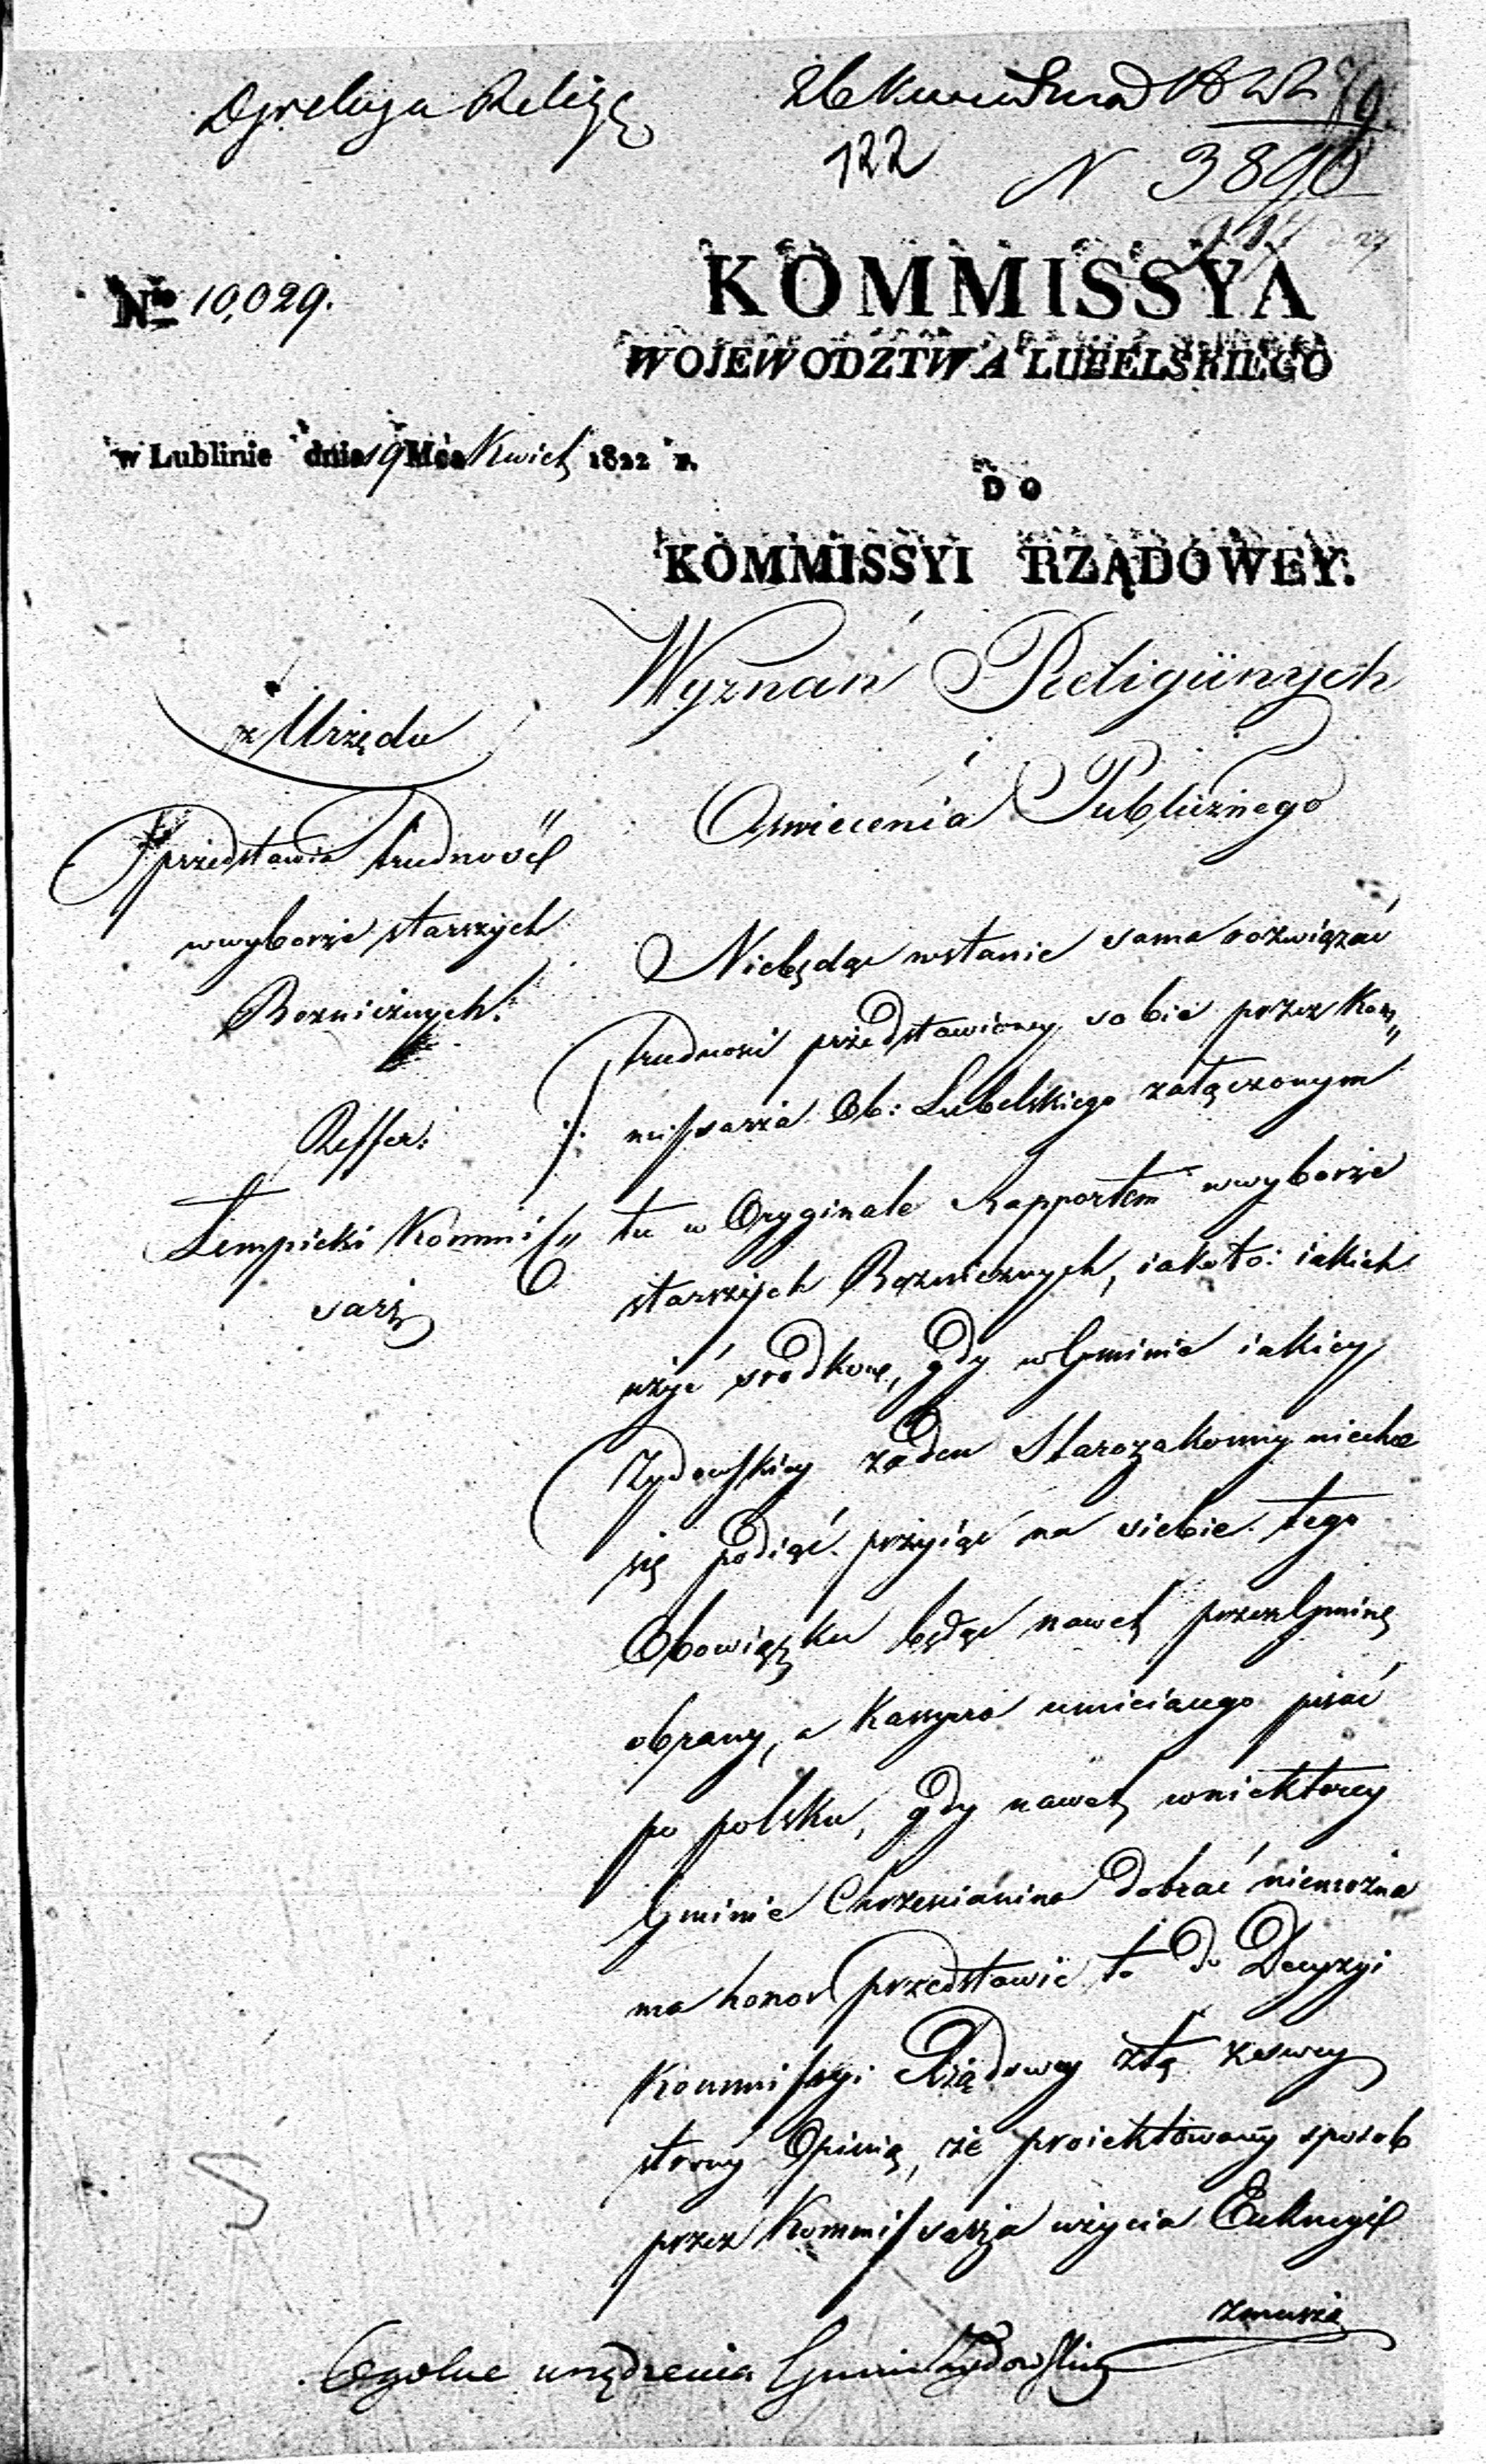 Dyrekcya Religij
26 Kwietnia 1822
79.
122
N 3890
No 10,029.
KOMMISSYA
WOJEWODZTWA LUBELSKIEGO
w Lublinie dnia 19 Mca Kwiet 1822 r.
DO
KOMMISSYI RZĄDOWEY.
Wyznań Religiinych
i
Oswiecenia Publicznego
z Urzędu
Przedstawia trudność
w wyborze starszych
Boznicznych.
Reffer:
Łempicki Kommis„
sarz
Niebędąc wstanie sama rozwiązać
trudności przedstawioney sobie przez Kom„
missarza Ob: Lubelskiego załączonym
tu w Oryginale Rapportem w wyborze
starszych Bożnicznych, iakoto: iakich
użyć srodkow, gdy w Gminie iakiey
Żydowskiey żaden Starozakonny niechce
się podiąć przyiąć na siebie tego
Obowiązku będąc nawet przez Gminę
obrany, a Kassyera umieiącego pisać
po polsku, gdy nawet w niektorey
Gminie Chrzescianina dobrać niemożna
ma honor przedstawić to do Decyzyi
Kommissyi Rządowey z tą ze swey
strony Opinią, że proiektowany sposob
przez Kommissarza użycia Exekucyi
zmusza
Ogolne urządzenia Gmin Żydowskich